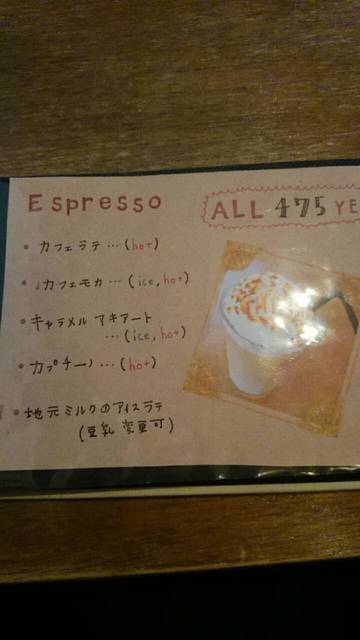 Espresso
ALL 475 YE
• カフェラテ … (hot)
• カフェモカ … (ice, hot)
• キャラメル アキアート
… (ice, hot)
• カプチーノ … (hot)
• 地元ミルクのアイスラテ
(豆乳 変更可)